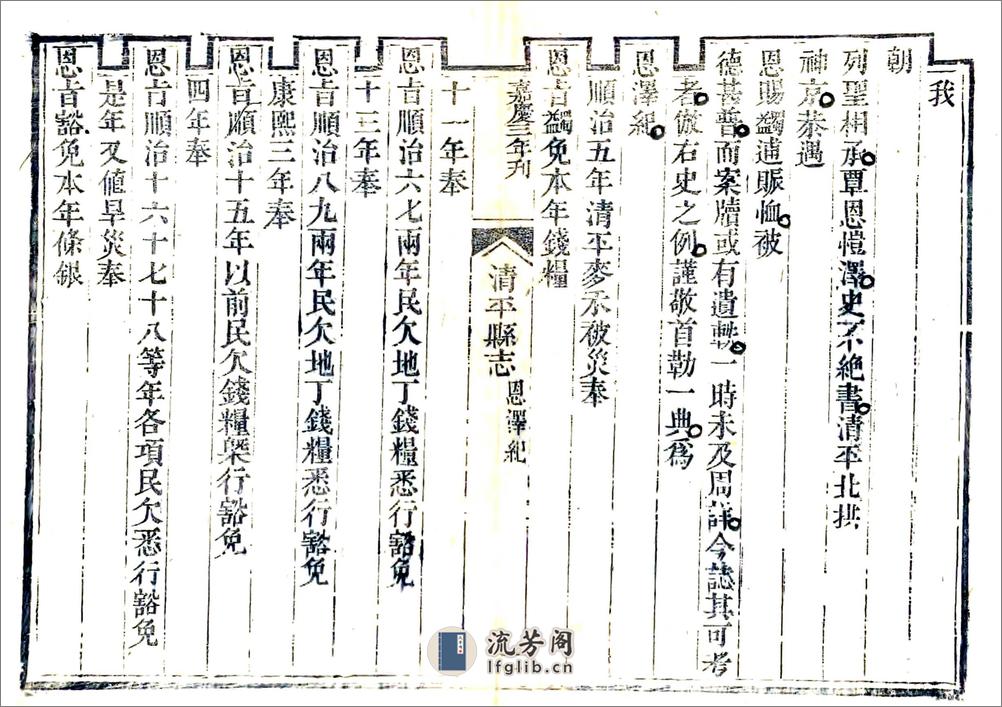 我
朝
列聖相承覃恩愷澤史不絕書清平北拱
神京恭遇
恩賜蠲逋賑恤被
德甚普而案牘或有遺軼一時未及周詳今誌其可考
者倣右史之例謹敬首勒一典為
恩澤紀
順治五年清平麥禾被災奉
恩旨蠲免本年錢糧
嘉慶三年刊
清平縣志 恩澤紀
十一年奉
恩旨順治六七兩年民欠地丁錢糧悉行豁免
十三年奉
恩旨順治八九兩年民欠地丁錢糧悉行豁免
康熙三年奉
恩旨順治十五年以前民欠錢糧槩行豁免
四年奉
恩旨順治十六十七十八等年各項民欠悉行豁免
是年又値旱災奉
恩旨豁免本年條銀
流芳阁
lfglib.cn